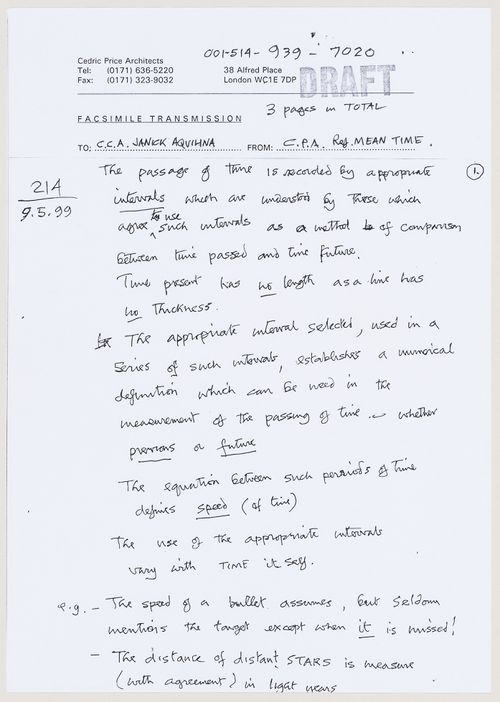 001-514-939-7020
Cedric Price Architects
Tel: (0171) 636-5220
Fax: (0171) 323-9032
38 Alfred Place
London WC1E 7DP
DRAFT
3 pages in TOTAL
FACSIMILE TRANSMISSION
TO: C.C.A. JANICK AQUILINA FROM: C.P.A. Ref. MEAN TIME.
1.
214
9.5.99
The passage of time is recorded by appropriate
intervals which are understood by those which
agree to use such intervals as a method of comparison
between time passed and time future.
Time present has no length as a line has
no thickness.
The appropriate interval selected, used in a
series of such intervals, establishes a numerical
definition which can be used in the
measurement of the passing of time - whether
previous or future
The equation between such periods of time
defines speed (of time)
The use of the appropriate intervals
vary with TIME it self.
e.g. - The speed of a bullet assumes, but seldom
mentions the target except when it is missed!
- The distance of distant STARS is measure
(with agreement) in light years